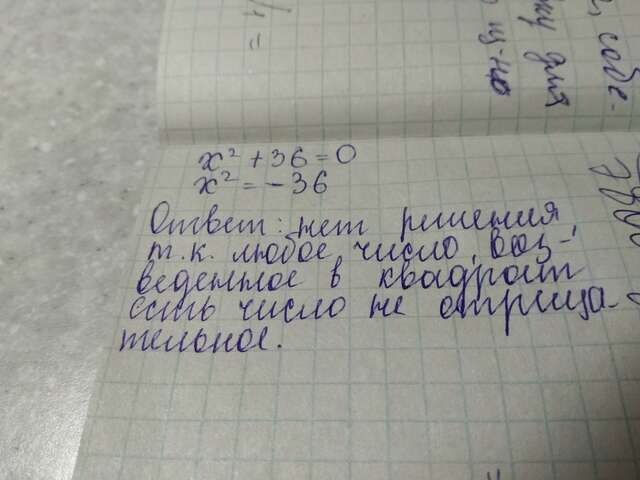 х² + 36 = 0
х² = - 36
Ответ: нет решения,
т.к. любое число, воз-
веденное в квадрат
есть число не отрица-
тельное.